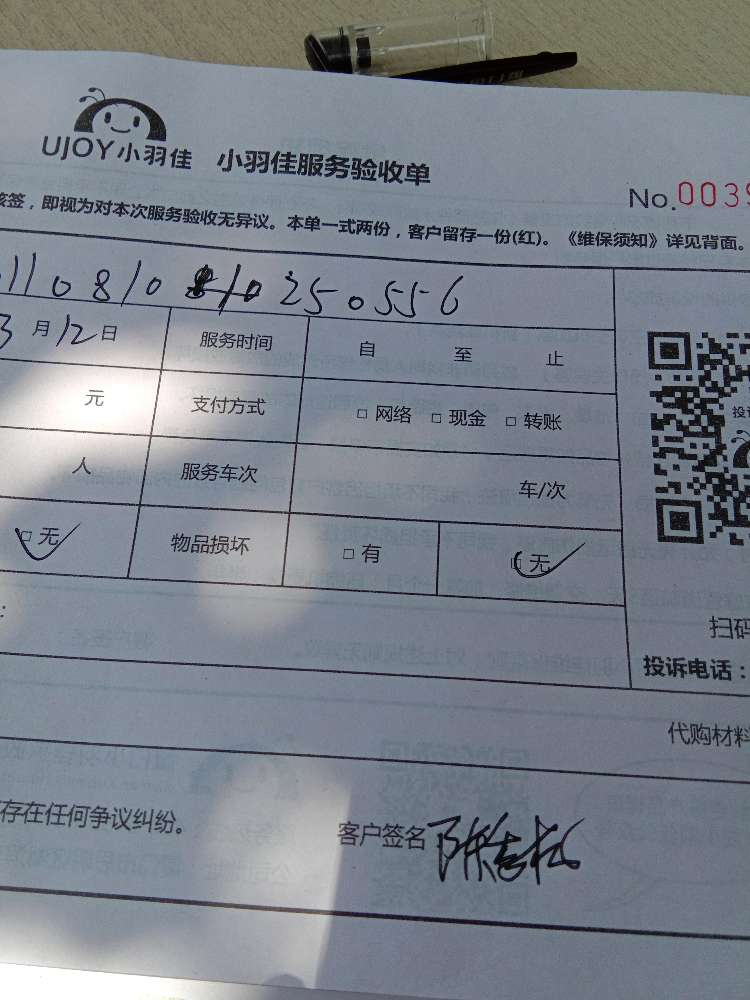 UJOY小羽佳 小羽佳服务验收单
No.0039
签，即视为对本次服务验收无异议。本单一式两份，客户留存一份(红)。《维保须知》详见背面。
110810 1025 0556
3月12日 服务时间 自 至 止
元 支付方式 □ 网络 □ 现金 □ 转账
人 服务车次 车/次
□ 无 物品损坏 □ 有 □ 无
扫码
投诉电话：
代购材料
存在任何争议纠纷。 客户签名